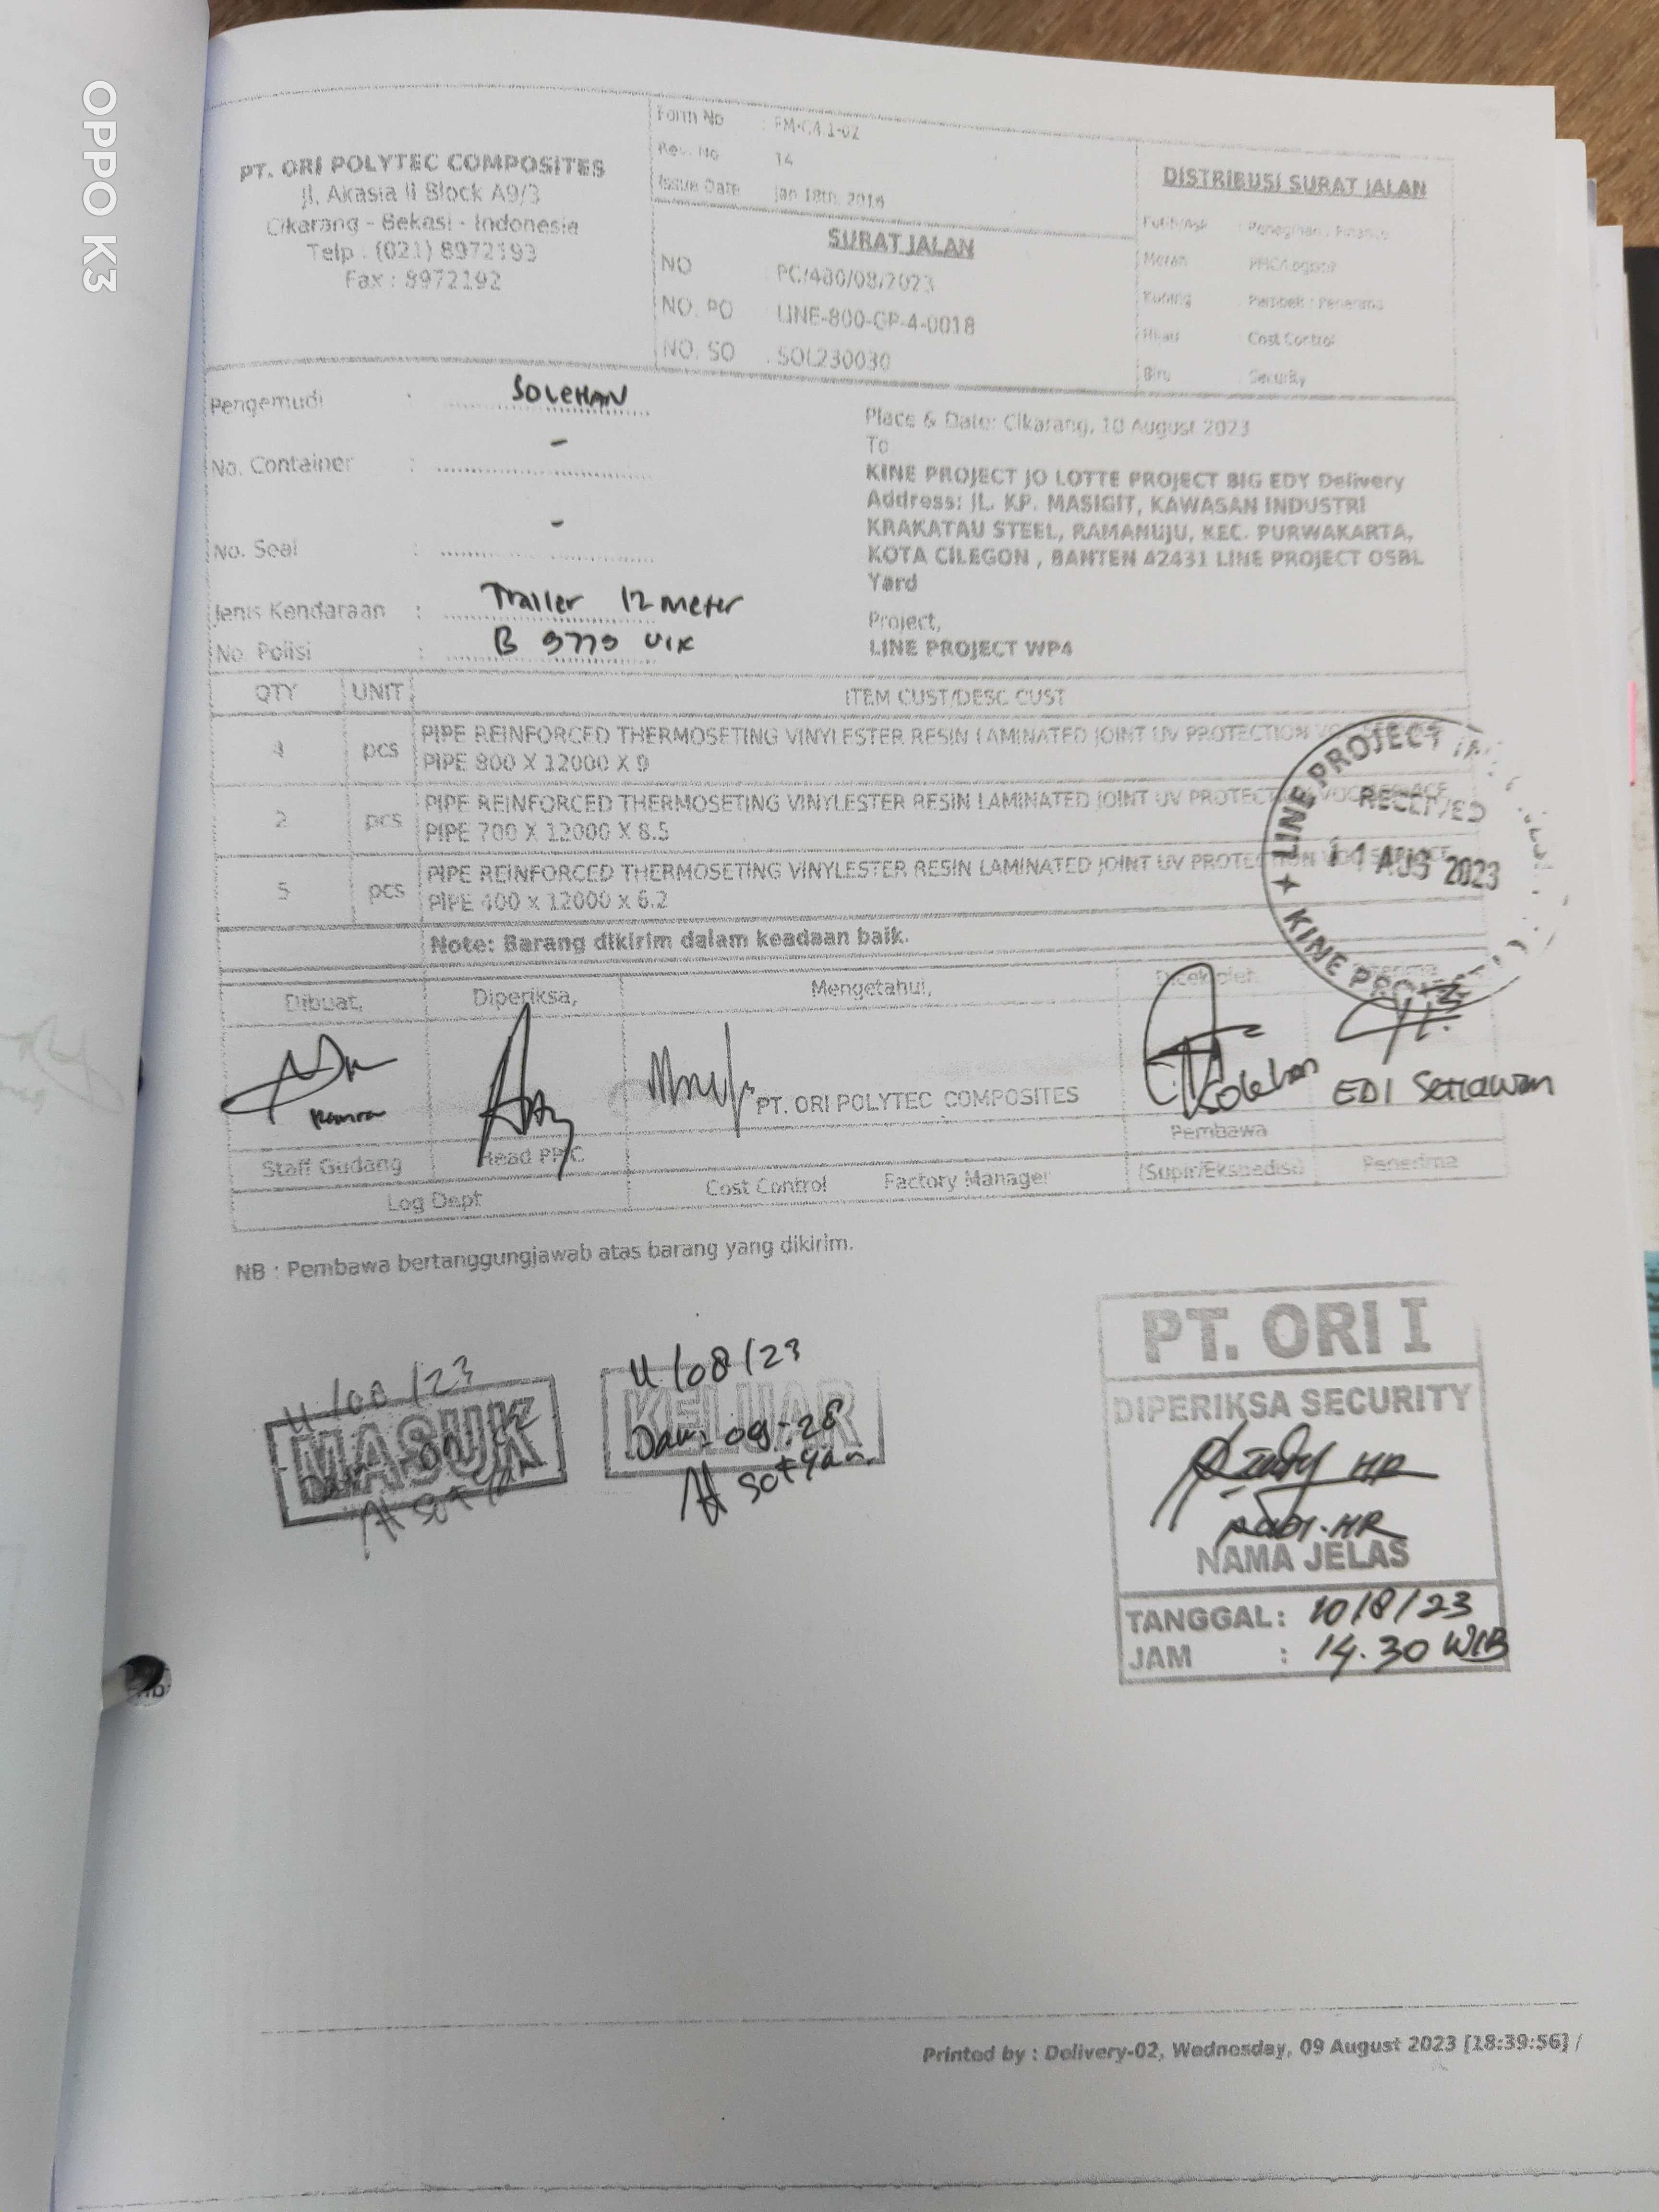 OPPO K3
PT. ORI POLYTEC COMPOSITES
Jl. Akasia II Block A9/3
Cikarang - Bekasi - Indonesia
Telp . (021) 8972193
Fax : 8972192
Form No : FM-C4.1-02
Rev. No 14
Issue Date Jan 18th, 2016
SURAT JALAN
NO PC/480/08/2023
NO. PO LINE-800-GP-4-0018
NO. SO . SOL230030
DISTRIBUSI SURAT JALAN
Putih/Asli : Penagihan / Finance
Merah PPIC/Logistik
Kuning Pembeli / Penerima
Hijau Cost Control
Biru Security
Pengemudi : SOLEHAN
No. Container : -
No. Seal : -
Jenis Kendaraan : Trailer 12 meter
No. Polisi : B 9779 UIX
Place & Date: Cikarang, 10 August 2023
To
KINE PROJECT JO LOTTE PROJECT BIG EDY Delivery
Address: JL. KP. MASIGIT, KAWASAN INDUSTRI
KRAKATAU STEEL, RAMANUJU, KEC. PURWAKARTA,
KOTA CILEGON , BANTEN 42431 LINE PROJECT OSBL
Yard
Project,
LINE PROJECT WP4
QTY UNIT ITEM CUST/DESC CUST
4 pcs PIPE REINFORCED THERMOSETING VINYLESTER RESIN LAMINATED JOINT UV PROTECTION
PIPE 800 X 12000 X 9
2 pcs PIPE REINFORCED THERMOSETING VINYLESTER RESIN LAMINATED JOINT UV PROTECTION
PIPE 700 X 12000 X 8.5
5 pcs PIPE REINFORCED THERMOSETING VINYLESTER RESIN LAMINATED JOINT UV PROTECTION
PIPE 400 x 12000 x 6.2
LINE PROJECT
RECEIVED
11 AUG 2023
KINE PROJECT
Note: Barang dikirim dalam keadaan baik.
Dibuat, Diperiksa, Mengetahui, Dicek oleh
PT. ORI POLYTEC COMPOSITES
Solehan EDI Setiawan
Staff Gudang Head PPIC Pembawa
Log Dept Cost Control Factory Manager (Supir/Ekspedisi) Penerima
NB : Pembawa bertanggungjawab atas barang yang dikirim.
11/08/23
MASUK
11/08/23
KELUAR
Jam: 09:28
PT. ORI I
DIPERIKSA SECURITY
NAMA JELAS
TANGGAL : 10/8/23
JAM : 14.30 WIB
Printed by : Delivery-02, Wednesday, 09 August 2023 [18:39:56] /